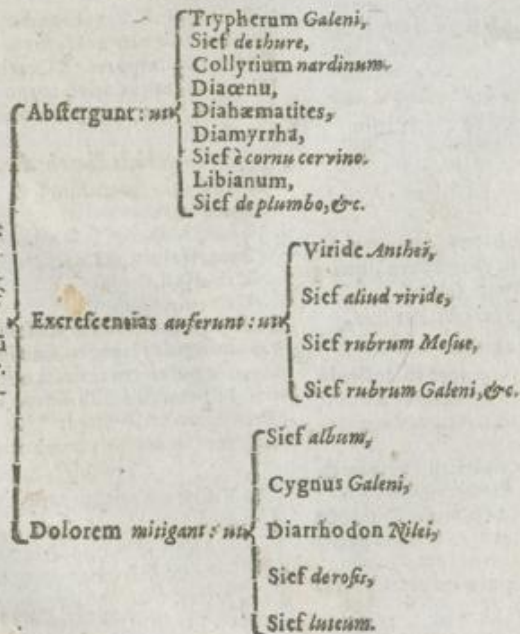 Abſtergunt: ut
Trypherum Galeni,
Sief de thure,
Collyrium nardinum.
Diaœnu,
Diahæmatites,
Diamyrrha,
Sief è cornu cervino.
Libianum,
Sief de plumbo, &c.
Excreſcentias auferunt: ut
Viride Antheï,
Sief aliud viride,
Sief rubrum Meſue,
Sief rubrum Galeni, &c.
Dolorem mitigant: ut
Sief album,
Cygnus Galeni,
Diarrhodon Nilei,
Sief de roſis,
Sief luteum.